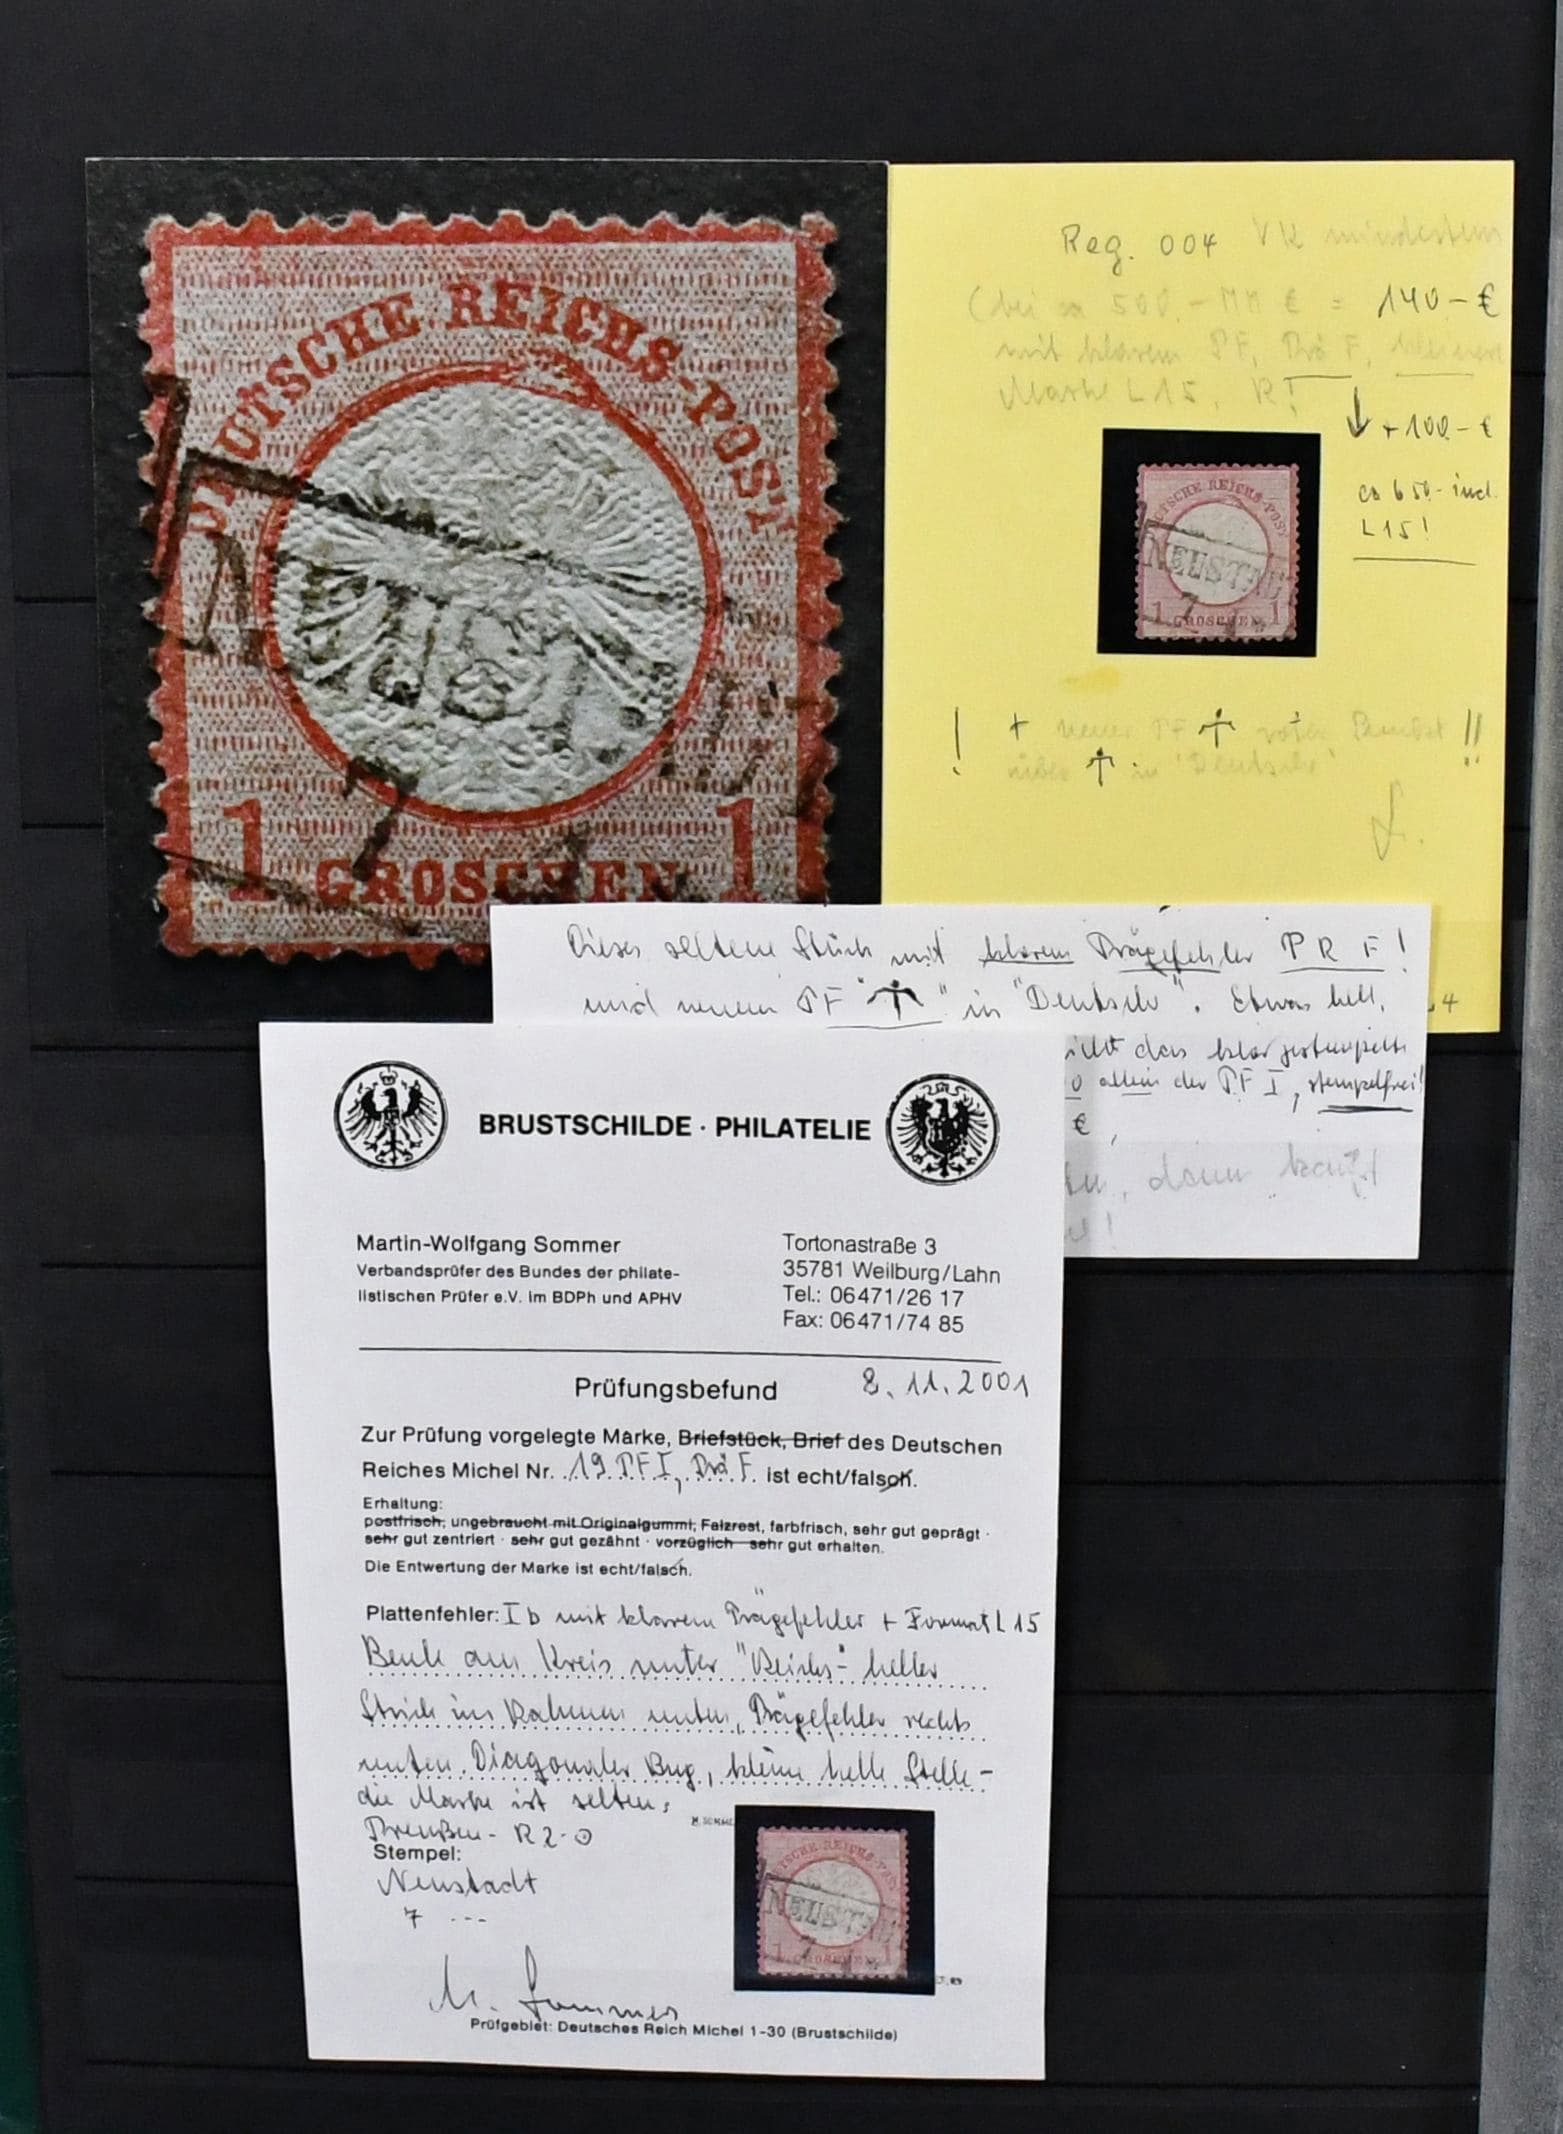 DEUTSCHE REICHS-POST
1 GROSCHEN 1
Reg. 004 VK mindestens
(bei ca 500.- MM € = 140.- €
mit klarem PF, Prä F, kleinere
Marke L15, R!
+ 100.- €
ca 650.- incl.
L15!
DEUTSCHE REICHS-POST
NEUSTAD
7
1 GROSCHEN 1
! + neuer PF roter !!
über in 'Deutsche'
L.
Dieses seltene Stück mit klarem Prägefehler P R F!
und neuem PF " " in "Deutsche". Etwas hell,
das klar gestempelte
allein der PF I, stempelfrei!
€,
, dann
BRUSTSCHILDE · PHILATELIE
Martin-Wolfgang Sommer
Verbandsprüfer des Bundes der philate-
listischen Prüfer e.V. im BDPh und APHV
Tortonastraße 3
35781 Weilburg/Lahn
Tel.: 06471/26 17
Fax: 06471/74 85
Prüfungsbefund 8.11.2001
Zur Prüfung vorgelegte Marke, Briefstück, Brief des Deutschen
Reiches Michel Nr. 19 PF I, Prä F ist echt/falsch.
Erhaltung:
postfrisch, ungebraucht mit Originalgummi, Falzrest, farbfrisch, sehr gut geprägt ·
sehr gut zentriert · sehr gut gezähnt · vorzüglich sehr gut erhalten.
Die Entwertung der Marke ist echt/falsch.
Plattenfehler: I b mit klarem Prägefehler + Format L 15
Beule am Kreis unter "Reichs"- heller
Strich im Rahmen unten, Prägefehler rechts
unten. Diagonaler Bug, kleine helle Stelle -
die Marke ist selten.
Preußen - R 2 - O
Stempel:
Neustadt
7 ---
DEUTSCHE REICHS-POST
NEUSTAD
7
1 GROSCHEN 1
M. Sommer
Prüfgebiet: Deutsches Reich Michel 1-30 (Brustschilde)